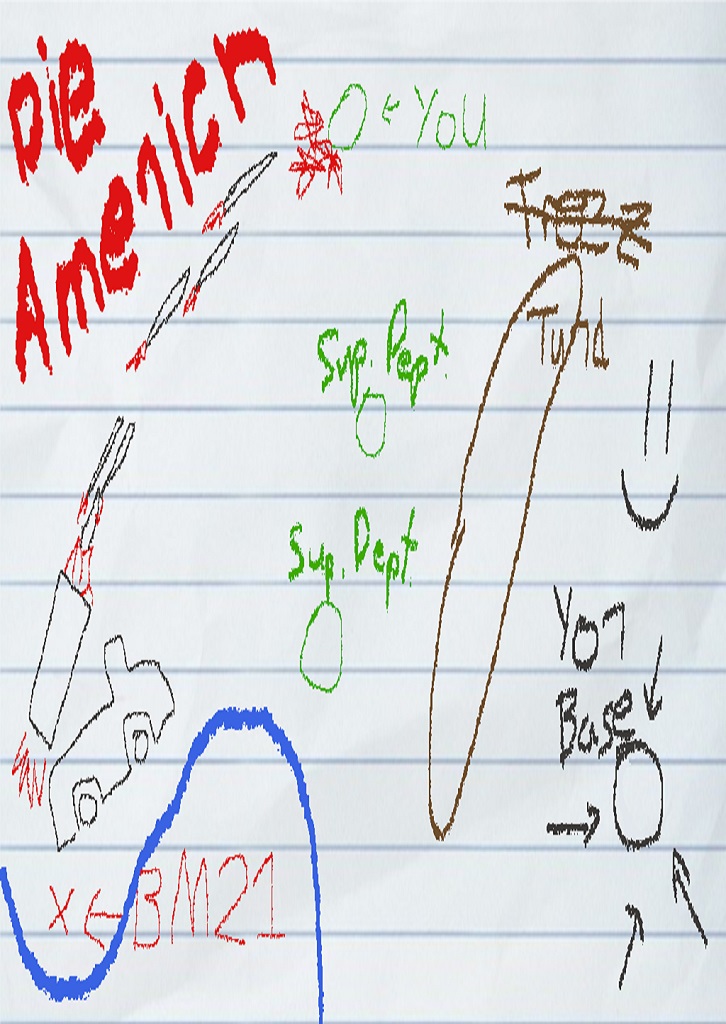 Die
Americn
← YOU
Freeze
Tund
Sup. Dept.
Sup. Dept.
Yor
Base
X ← BM21